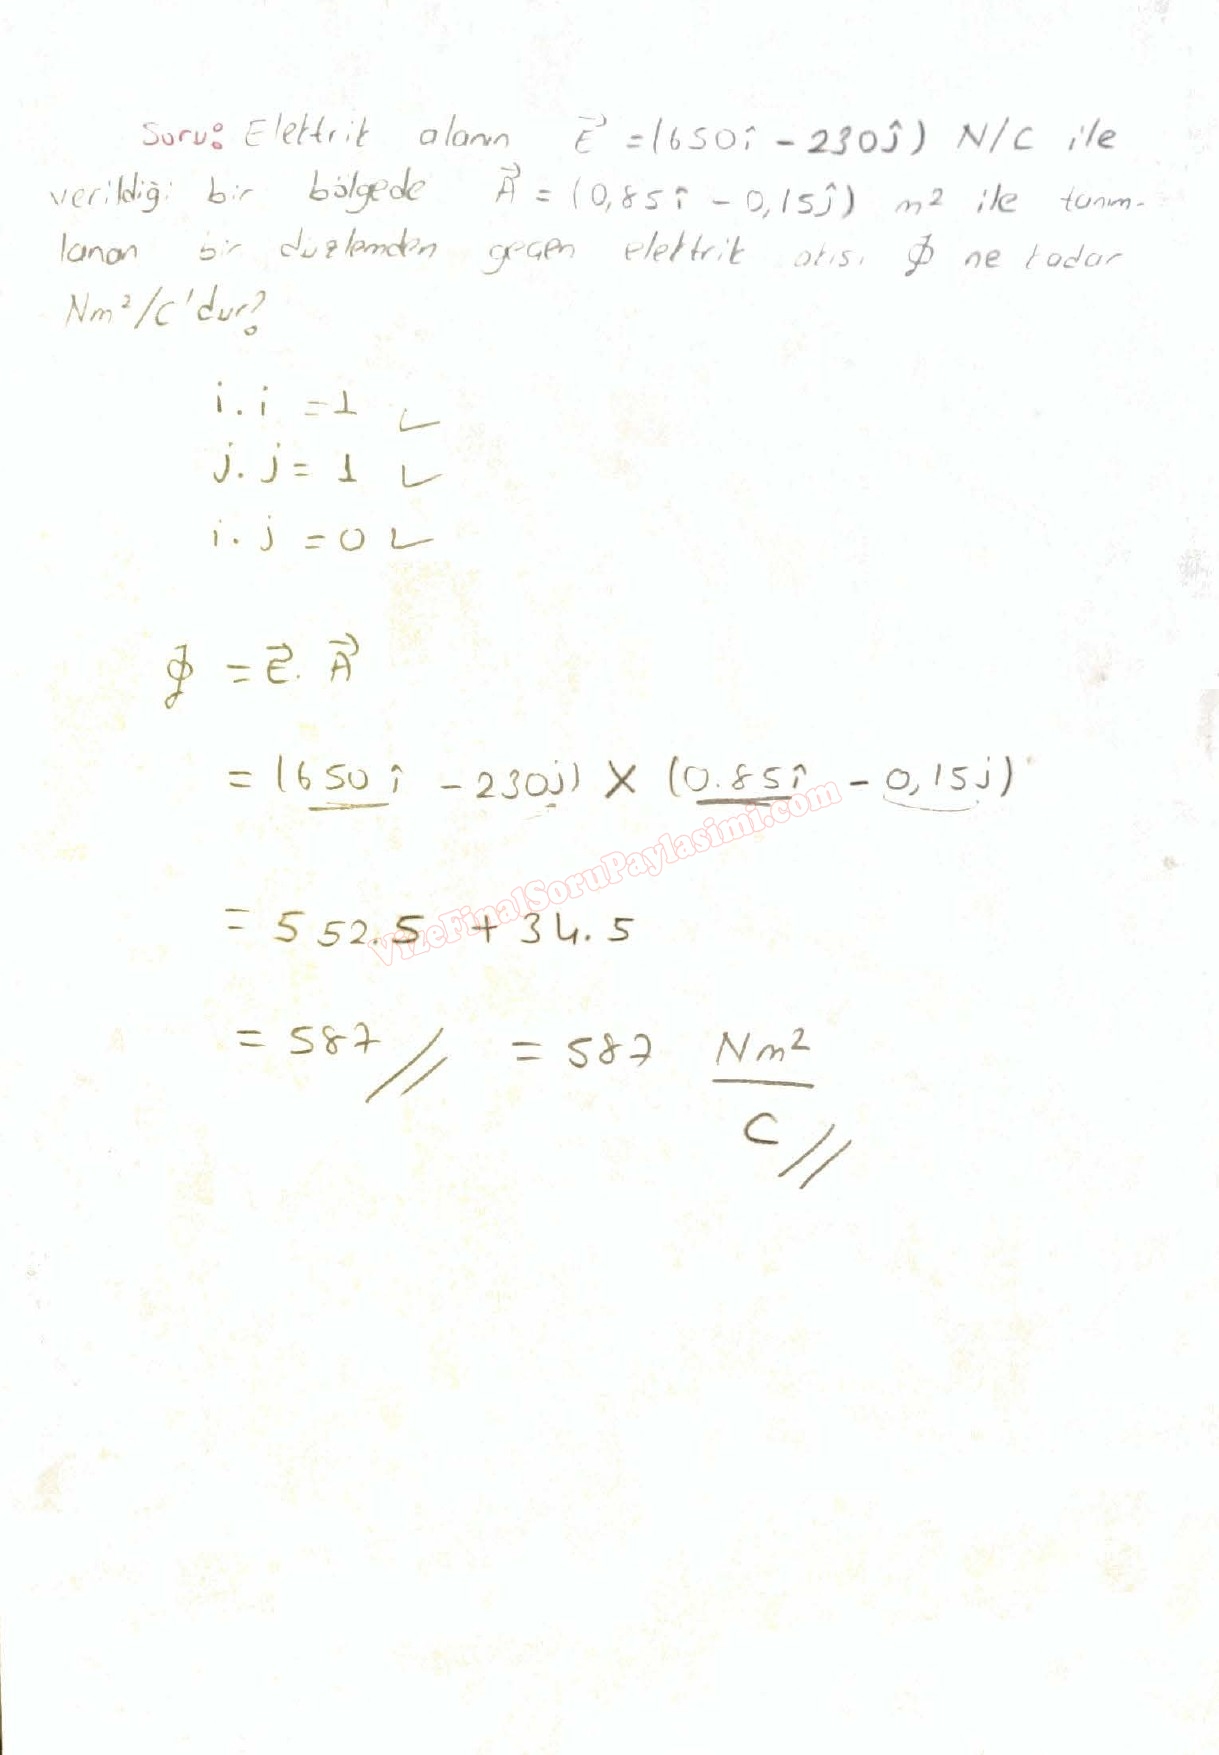 Soru: Elektrik alanın E⃗ = (650î - 230ĵ) N/C ile
verildiği bir bölgede A⃗ = (0,85î - 0,15ĵ) m² ile tanım-
lanan bir düzlemden geçen elektrik akısı ϕ ne kadar
Nm²/C'dur?
i.i = 1 ✓
j.j = 1 ✓
i.j = 0 ✓
ϕ = E⃗.A⃗
= (650î - 230j) X (0.85î - 0,15j)
= 552.5 + 34.5
= 587 // = 587 Nm²/C //
VizeFinalSoruPaylasimi.com